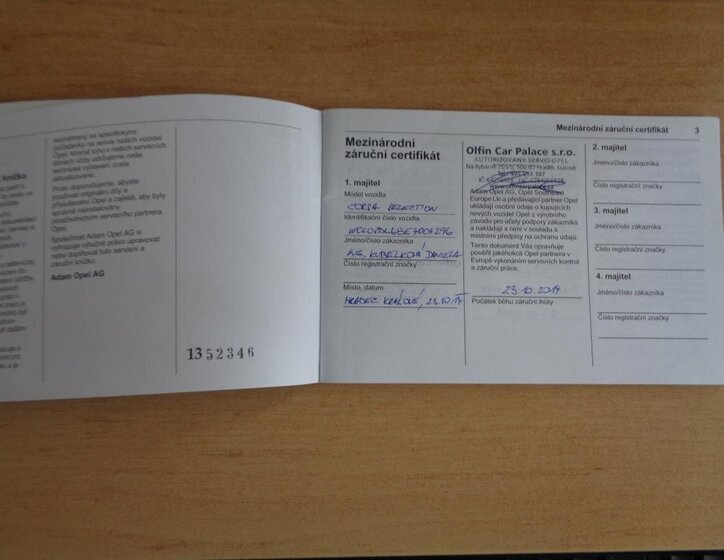 seznámený se specifickými
požadavky na servis našich vozidel
technické vybavení zcela
aktualizované.
Proto doporučujeme, abyste
používali originální díly a
příslušenství Opel a zajistili, aby byly
správně nainstalovány
prostřednictvím servisního partnera
Opel.
Společnost Adam Opel AG si
vyhrazuje výlučné právo upravovat
nebo doplňovat tuto servisní a
záruční knížku.
Adam Opel AG
1352346
Mezinárodní záruční certifikát 3
Mezinárodní
záruční certifikát
1. majitel
Model vozidla
CORSA SELECTION
Identifikační číslo vozidla
Jméno/číslo zákazníka
Číslo registrační značky
Místo, datum
HRADEC KRÁLOVÉ, 23.10.14
Olfin Car Palace s.r.o.
AUTORIZOVANÝ SERVIS OPEL
Adam Opel AG, Opel Southeast
Europe Llc a předávající partner Opel
ukládají osobní údaje o kupujících
nových vozidel Opel z výrobního
závodu pro účely podpory zákazníků
a nakládají s nimi v souladu s
místními předpisy na ochranu údajů.
Tento dokument Vás opravňuje
pověřit jakéhokoli Opel partnera v
Evropě vykonáním servisních kontrol
a záruční práce.
23.10.2014
Počátek běhu záruční lhůty
2. majitel
Jméno/číslo zákazníka
Číslo registrační značky
3. majitel
Jméno/číslo zákazníka
Číslo registrační značky
4. majitel
Jméno/číslo zákazníka
Číslo registrační značky